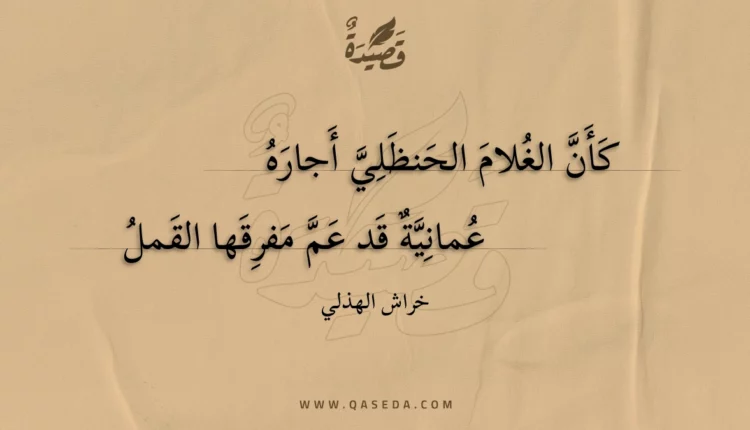 قَصِيدَةٌ
كَأَنَّ الغُلامَ الحَنظَلِيَّ أَجارَهُ
عُمانِيَّةٌ قَد عَمَّ مَفرِقَها القَملُ
خراش الهذلي
WWW.QASEDA.COM